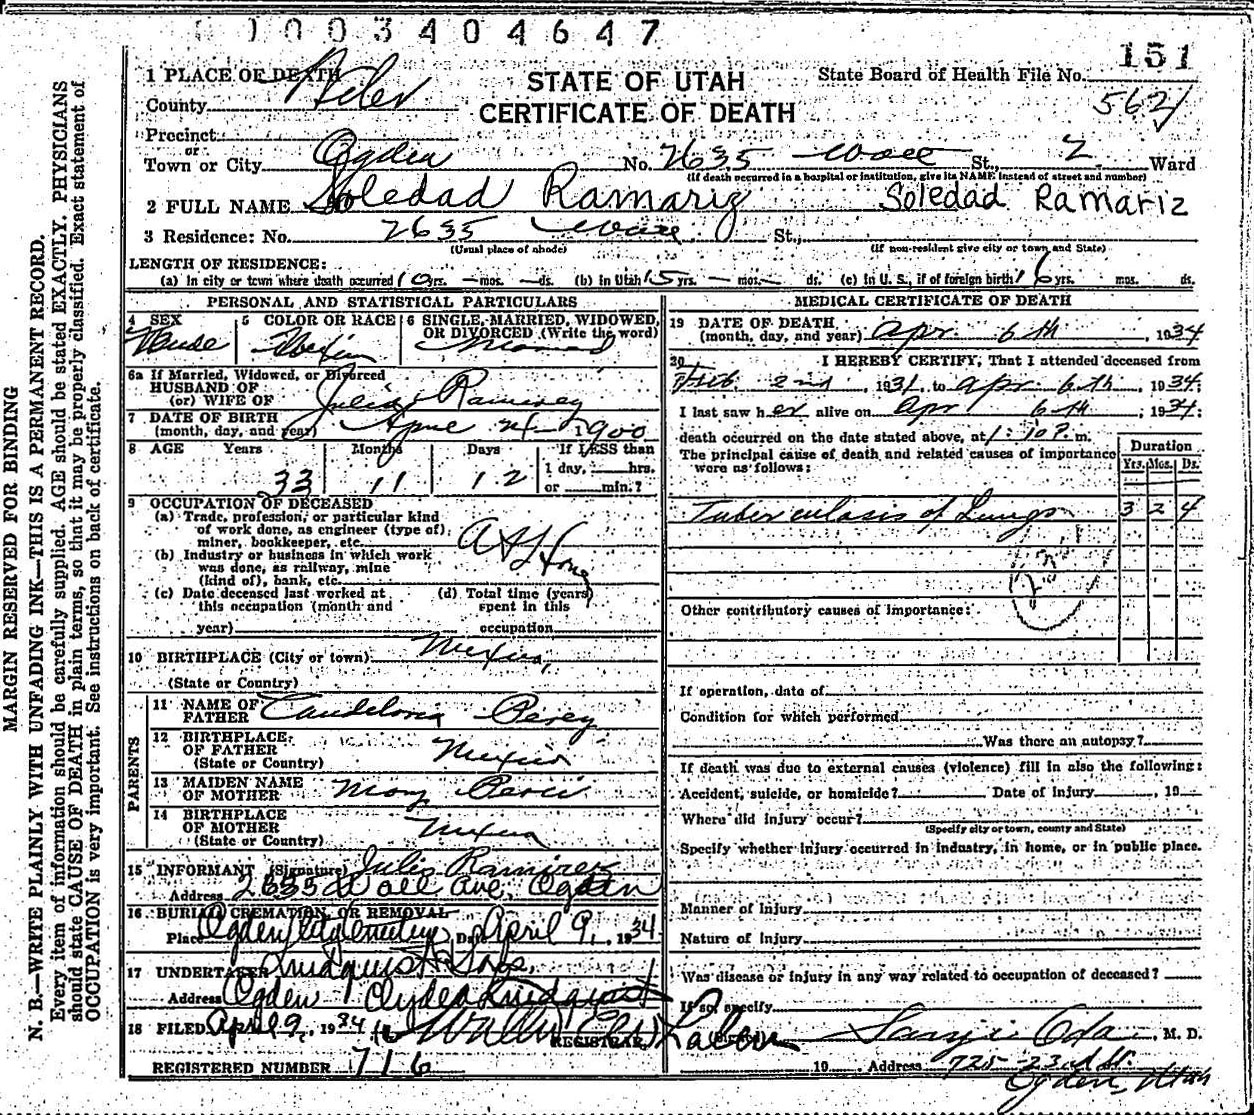 1003404647
151
STATE OF UTAH
CERTIFICATE OF DEATH
State Board of Health File No.
562
1 PLACE OF DEATH
County Weber
Precinct
or
Town or City Ogden No. 2635 Wall St., 2 Ward
(If death occurred in a hospital or institution, give its NAME instead of street and number)
2 FULL NAME Soledad Ramariz Soledad Ramariz
3 Residence: No. 2635 Wall St.,
(Usual place of abode) (If non-resident give city or town, and State)
LENGTH OF RESIDENCE:
(a) In city or town where death occurred 10 yrs. — mos. — ds. (b) In Utah 15 yrs. — mos. — ds. (c) In U. S., if of foreign birth 16 yrs. mos. ds.
PERSONAL AND STATISTICAL PARTICULARS
4 SEX 5 COLOR OR RACE 6 SINGLE, MARRIED, WIDOWED, OR DIVORCED (Write the word)
6a If Married, Widowed, or Divorced
HUSBAND OF
(or) WIFE OF Julio Ramirez
7 DATE OF BIRTH
(month, day, and year) April 24 1900
8 AGE Years Months Days If LESS than
1 day, hrs.
33 11 12 or min.?
9 OCCUPATION OF DECEASED
(a) Trade, profession, or particular kind
of work done, as engineer (type of)
miner, bookkeeper, etc. At Home
(b) Industry or business in which work
was done, as railway, mine
(kind of), bank, etc.
(c) Date deceased last worked at (d) Total time (years)
this occupation (month and spent in this
year) occupation
10 BIRTHPLACE (City or town) Mexico
(State or Country)
PARENTS
11 NAME OF
FATHER Perez
12 BIRTHPLACE
OF FATHER Mexico
(State or Country)
13 MAIDEN NAME
OF MOTHER Mary
14 BIRTHPLACE
OF MOTHER Mexico
(State or Country)
15 INFORMANT (Signature) Julio Ramirez
Address 2635 Wall Ave. Ogden
16 BURIAL CREMATION OR REMOVAL
Place Ogden City Cemetery Date April 9, 1934
17 UNDERTAKER Lindquist & Sons
Address Ogden Clyde Lindquist
18 FILED April 9, 1934
REGISTRAR
REGISTERED NUMBER 716
MEDICAL CERTIFICATE OF DEATH
19 DATE OF DEATH
(month, day, and year) Apr. 6th, 1934
20 I HEREBY CERTIFY, That I attended deceased from
Feb 2nd, 1931, to Apr. 6th, 1934.
I last saw her alive on Apr 6th, 1934;
death occurred on the date stated above, at 1:10 P. m.
The principal cause of death and related causes of importance
were as follows:
Duration
Yrs. Mos. Ds.
Tuberculosis of Lungs 3 2 4
Other contributory causes of importance:
If operation, date of
Condition for which performed
Was there an autopsy?
If death was due to external causes (violence) fill in also the following:
Accident, suicide, or homicide? Date of injury, 19
Where did injury occur?
(Specify city or town, county and State)
Specify whether injury occurred in industry, in home, or in public place.
Manner of Injury
Nature of Injury
Was disease or injury in any way related to occupation of deceased?
If so, specify
Oda, M. D.
19 Address 725-23rd St.
Ogden, Utah
MARGIN RESERVED FOR BINDING
N. B.—WRITE PLAINLY WITH UNFADING INK—THIS IS A PERMANENT RECORD.
Every item of information should be carefully supplied. AGE should be stated EXACTLY. PHYSICIANS
should state CAUSE OF DEATH in plain terms, so that it may be properly classified. Exact statement of
OCCUPATION is very important. See instructions on back of certificate.